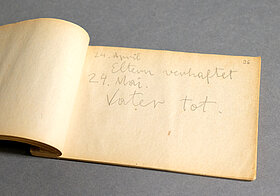 36
24. April
Eltern verhaftet
24. Mai.
Vater tot.